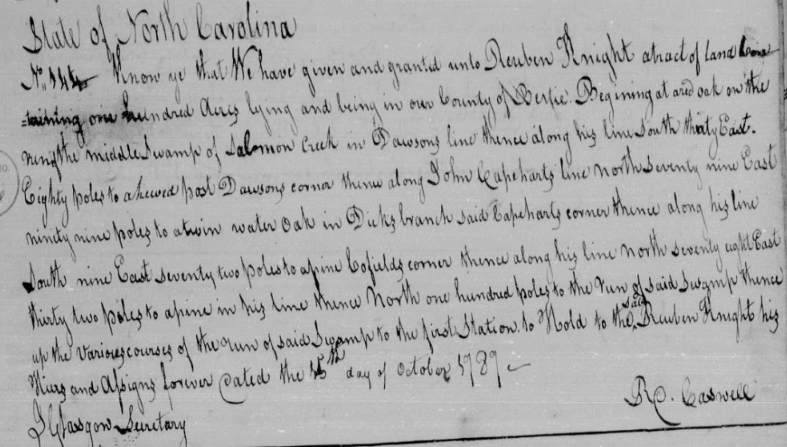 State of North Carolina
No. 144 Know ye that We have given and granted unto Reuben Knight a tract of Land Con
=taining one hundred Acres lying and being in our County of Bertie. Begining at a red oak on the
run of the middle Swamp of Salomon Creek in Dawsons line thence along his line South thirty East.
Eighty poles to a hewed post Dawsons corner thence along John Capeharts line North seventy nine East
ninety nine poles to a twin water Oak in Dicks branch said Capeharts corner thence along his line
South nine East seventy two poles to a pine Cofields corner thence along his line North seventy eight East
thirty two poles to a pine in his line thence North one hundred poles to the run of said Swamp thence
up the various courses of the run of said Swamp to the first Station. to Hold to the said Reuben Knight his
Heirs and Assigns forever Dated the 15th day of October 1787
Rd. Caswell
J Glasgow Secretary